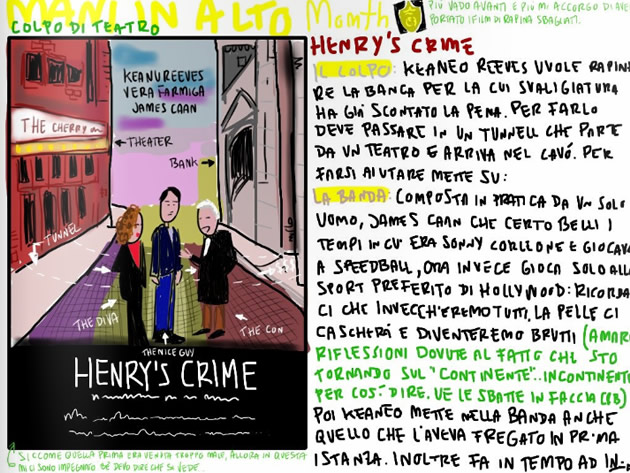 MANI IN ALTO Month
CI
COLPO DI TEATRO
PIÙ VADO AVANTI E PIÙ MI ACCORGO DI AVE
PORTATO I FILM DI RAPINA SBAGLIATI.
KEANU REEVES
VERA FARMIGA
JAMES CAAN
THE CHERRY
THEATER
BANK
TUNNEL
THE DIVA
THE CON
THE NICE GUY
HENRY'S CRIME
(*SICCOME QUELLA PRIMA ERA VENUTA TROPPO MALE, ALLORA IN QUESTA
MI CI SONO IMPEGNATO. SÉ DEVO DIRE CHE SI VEDE...
HENRY'S CRIME
IL COLPO: KEANEO REEVES VUOLE RAPINA
RE LA BANCA PER LA CUI SVALIGIATURA
HA GIÀ SCONTATO LA PENA. PER FARLO
DEVE PASSARE IN UN TUNNELL CHE PARTE
DA UN TEATRO E ARRIVA NEL CAVÓ. PER
FARSI AIUTARE METTE SU:
LA BANDA: COMPOSTA IN PRATICA DA UN SOLO
UOMO, JAMES CAAN CHE CERTO BELLI I
TEMPI IN CU' ERA SONNY CORLEONE E GIOCAVA
A SPEEDBALL, ORA INVECE GIOCA SOLO ALLO
SPORT PREFERITO DI HOLLYWOOD: RICORDAR
CI CHE INVECCH'EREMO TUTTI, LA PELLE CI
CASCHERÀ E DIVENTEREMO BRUTTI (AMARE
RIFLESSIONI DOVUTE AL FATTO CHE STO
TORNANDO SUL "CONTINENTE"..INCONTINENTE
PER COSÌ DIRE. VE LE SBATTE IN FACCIA (RB)
POI KEANEO METTE NELLA BANDA ANCHE
QUELLO CHE L'AVEVA FREGATO IN PRIMA
ISTANZA. INOLTRE FA IN TEMPO AD IN-